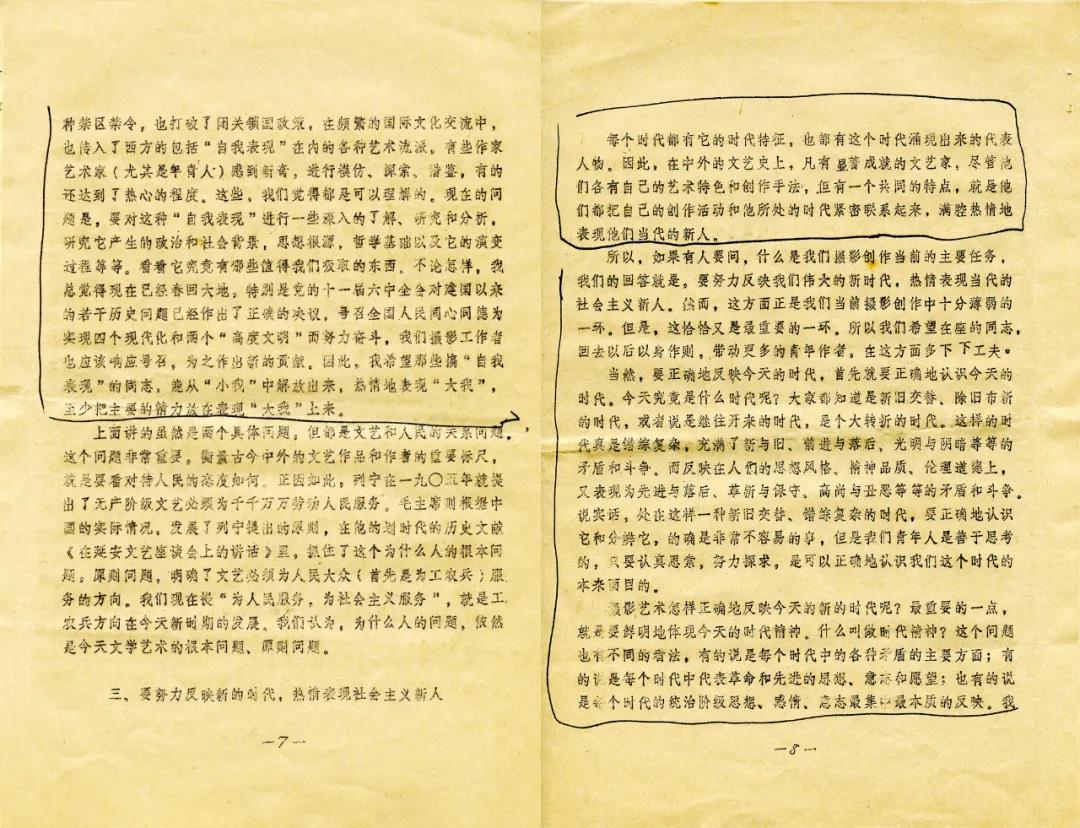 种禁区禁令，也打破了闭关锁国政策，在频繁的国际文化交流中，
也传入了西方的包括“自我表现”在内的各种艺术流派。有些作家
艺术家（尤其是年青人）感到新奇，进行模仿、探索、借鉴，有的
还达到了热心的程度。这些，我们觉得都是可以理解的。现在的问
题是，要对这种“自我表现”进行一些深入的了解、研究和分析，
研究它产生的政治和社会背景，思想根源，哲学基础以及它的演变
过程等等。看看它究竟有哪些值得我们吸取的东西。不论怎样，我
总觉得现在已经春回大地。特别是党的十一届六中全会对建国以来
的若干历史问题已经作出了正确的决议，号召全国人民同心同德为
实现四个现代化和两个“高度文明”而努力奋斗，我们摄影工作者
也应该响应号召，为之作出新的贡献。因此，我希望那些搞“自我
表现”的同志，能从“小我”中解放出来，热情地表现“大我”，
至少把主要的精力放在表现“大我”上来。
上面讲的虽然是两个具体问题，但都是文艺和人民的关系问题。
这个问题非常重要。衡量古今中外的文艺作品和作者的重要标尺，
就是要看对待人民的态度如何。正因如此，列宁在一九〇五年就提
出了无产阶级文艺必须为千千万万劳动人民服务。毛主席则根据中
国的实际情况，发展了列宁提出的原则，在他的划时代的历史文献
《在延安文艺座谈会上的讲话》里，抓住了这个为什么人的根本问
题，原则问题，明确了文艺必须为人民大众（首先是为工农兵）服
务的方向。我们现在提“为人民服务，为社会主义服务”，就是工
农兵方向在今天新时期的发展。我们认为，为什么人的问题，依然
是今天文学艺术的根本问题、原则问题。
三、要努力反映新的时代，热情表现社会主义新人
—7—
每个时代都有它的时代特征，也都有这个时代涌现出来的代表
人物。因此，在中外的文艺史上，凡有显著成就的文艺家，尽管他
们各有自己的艺术特色和创作手法，但有一个共同的特点，就是他
们都把自己的创作活动和他所处的时代紧密联系起来，满腔热情地
表现他们当代的新人。
所以，如果有人要问，什么是我们摄影创作当前的主要任务，
我们的回答就是。要努力反映我们伟大的新时代，热情表现当代的
社会主义新人。然而，这方面正是我们当前摄影创作中十分薄弱的
一环。但是，这恰恰又是最重要的一环。所以我们希望在座的同志，
回去以后以身作则，带动更多的青年作者，在这方面多下下工夫。
当然，要正确地反映今天的时代，首先就要正确地认识今天的
时代。今天究竟是什么时代呢？大家都知道是新旧交替、除旧布新
的时代，或者说是继往开来的时代，是个大转折的时代。这样的时
代真是错综复杂，充满了新与旧、前进与落后、光明与阴暗等等的
矛盾和斗争。而反映在人们的思想风格、精神品质、伦理道德上，
又表现为先进与落后、革新与保守。高尚与丑恶等等的矛盾和斗争。
说实话，处在这样一种新旧交替、错综复杂的时代，要正确地认识
它和分辨它，的确是非常不容易的事，但是我们青年人是善于思考
的，只要认真思索，努力探求，是可以正确地认识我们这个时代的
本来面目的。
摄影艺术怎样正确地反映今天的新的时代呢？最重要的一点，
就是要鲜明地体现今天的时代精神。什么叫做时代精神？这个问题
也有不同的看法，有的说是每个时代中的各种矛盾的主要方面；有
的说是每个时代中代表革命和先进的思想、意志和愿望；也有的说
是每个时代的统治阶级思想、感情、意志最集中最本质的反映。我
—8—